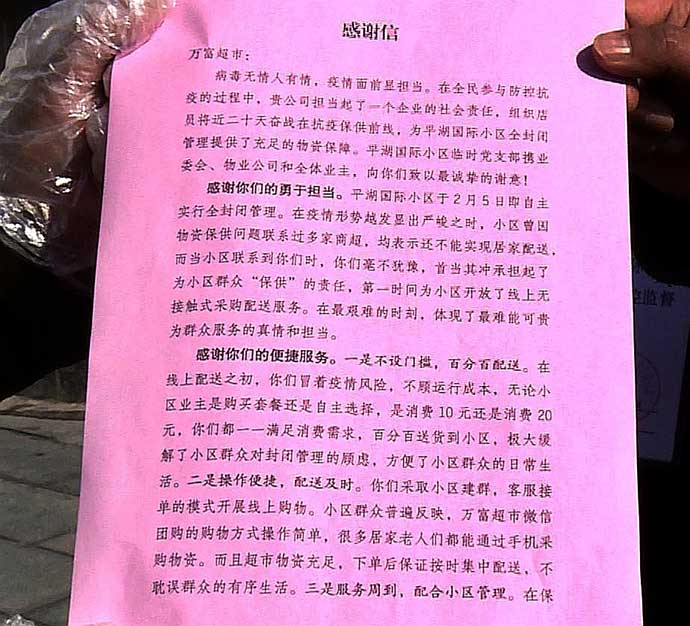 感谢信
万富超市：
病毒无情人有情，疫情面前显担当。在全民参与防控抗
疫的过程中，贵公司担当起了一个企业的社会责任，组织店
员将近二十天奋战在抗疫保供前线，为平湖国际小区全封闭
管理提供了充足的物资保障。平湖国际小区临时党支部携业
委会、物业公司和全体业主，向你们致以最诚挚的谢意！
感谢你们的勇于担当。平湖国际小区于2月5日即自主
实行全封闭管理。在疫情形势越发显出严峻之时，小区曾因
物资保供问题联系过多家商超，均表示还不能实现居家配送，
而当小区联系到你们时，你们毫不犹豫，首当其冲承担起了
为小区群众“保供”的责任，第一时间为小区开放了线上无
接触式采购配送服务。在最艰难的时刻，体现了最难能可贵
为群众服务的真情和担当。
感谢你们的便捷服务。一是不设门槛，百分百配送。在
线上配送之初，你们冒着疫情风险，不顾运行成本，无论小
区业主是购买套餐还是自主选择，是消费10元还是消费20
元，你们都一一满足消费需求，百分百送货到小区，极大缓
解了小区群众对封闭管理的顾虑，方便了小区群众的日常生
活。二是操作便捷，配送及时。你们采取小区建群，客服接
单的模式开展线上购物。小区群众普遍反映，万富超市微信
团购的购物方式操作简单，很多居家老人们都能通过手机采
购物资。而且超市物资充足，下单后保证按时集中配送，不
耽误群众的有序生活。三是服务周到，配合小区管理。在保
监督